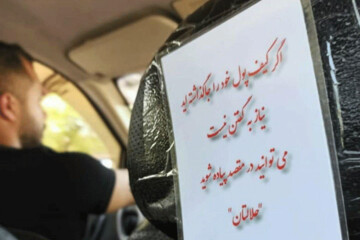 اگر کیف پول خود را جا گذاشته اید
نیاز به گفتن نیست
می توانید در مقصد پیاده شوید
"حلالتان"